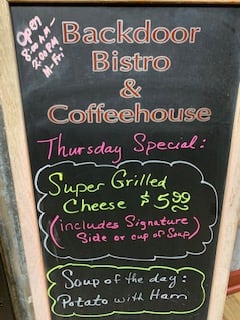 Open
8:00 AM-
2:00 PM
M-Fri
Backdoor
Bistro
&
Coffeehouse
Thursday Special:
Super Grilled
Cheese $5.99
(includes Signature
Side or cup of Soup)
Soup of the day:
Potato with Ham